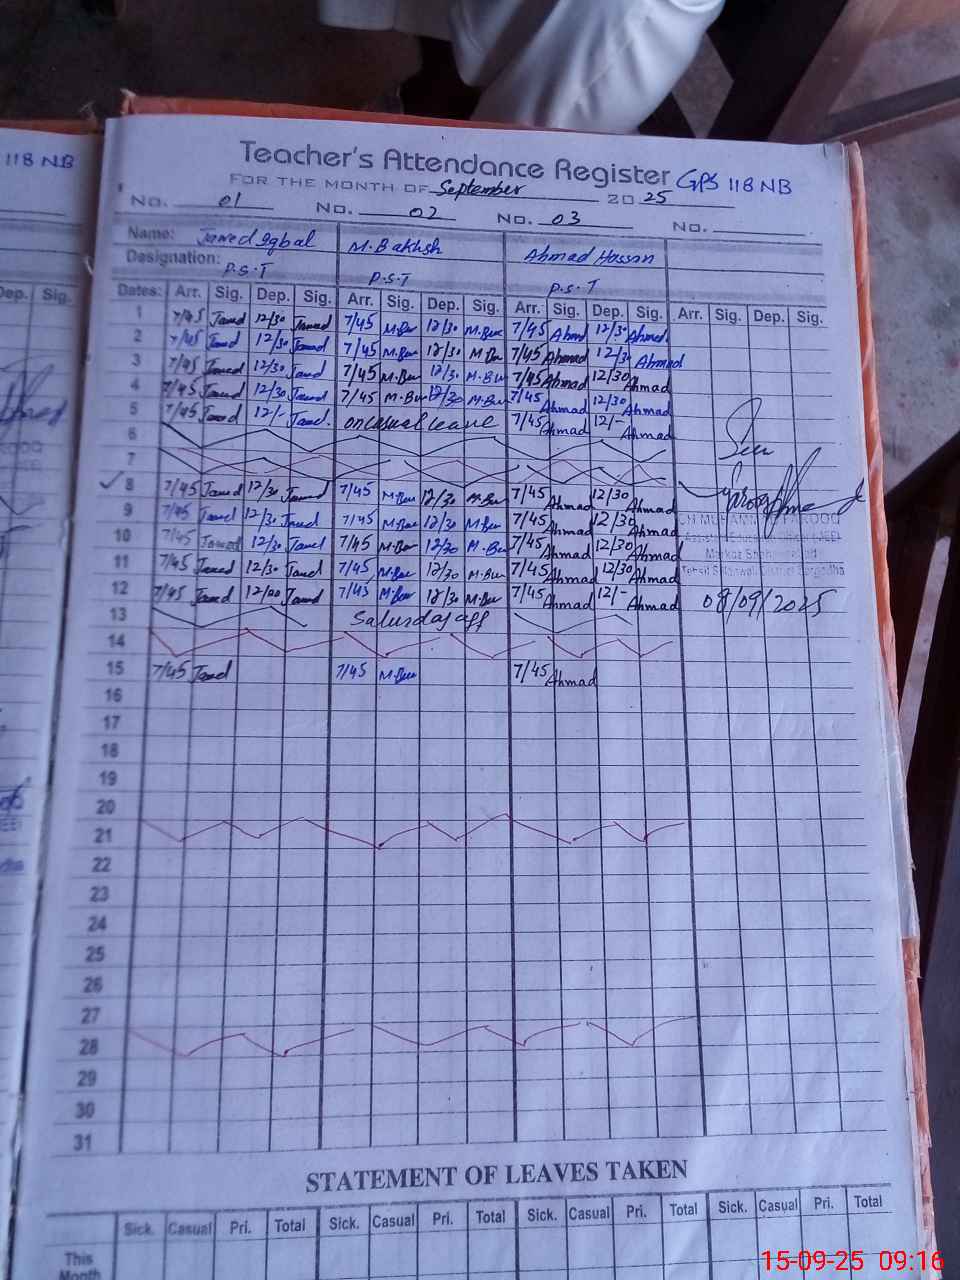 118 NB
Teacher's Attendance Register GPS 118 NB
FOR THE MONTH OF September 2025
No. 01 No. 02 No. 03 No.
Name: Javed Iqbal M.Bakhsh Ahmad Hassan
Designation: P.S.T P.S.T P.S.T
Dep. Sig.
Dates: Arr. Sig. Dep. Sig. Arr. Sig. Dep. Sig. Arr. Sig. Dep. Sig. Arr. Sig. Dep. Sig.
1 7/45 Javed 12/30 Javed 7/45 12/30 7/45 Ahmad 12/30 Ahmad
2 7/45 Javed 12/30 Javed 7/45 12/30 7/45 Ahmad 12/30 Ahmad
3 7/45 Javed 12/30 Javed 7/45 12/30 7/45 Ahmad 12/30 Ahmad
4 7/45 Javed 12/30 Javed 7/45 12/30 7/45 Ahmad 12/30 Ahmad
5 7/45 Javed 12/- Javed. on casual leave 7/45 Ahmad 12/- Ahmad
6
7
8 7/45 Javed 12/30 Javed 7/45 12/30 7/45 Ahmad 12/30 Ahmad
9 7/45 Javed 12/30 Javed 7/45 12/30 7/45 Ahmad 12/30 Ahmad
10 7/45 Javed 12/30 Javed 7/45 12/30 7/45 Ahmad 12/30 Ahmad
11 7/45 Javed 12/30 Javed 7/45 12/30 7/45 Ahmad 12/30 Ahmad
12 7/45 Javed 12/00 Javed 7/45 12/30 7/45 Ahmad 12/- Ahmad 08/09/2025
13 Saturday off
14
15 7/45 Javed 7/45 7/45 Ahmad
16
17
18
19
20
21
22
23
24
25
26
27
28
29
30
31
STATEMENT OF LEAVES TAKEN
Sick. Casual Pri. Total Sick. Casual Pri. Total Sick. Casual Pri. Total Sick. Casual Pri. Total
This
Month
15-09-25 09:16